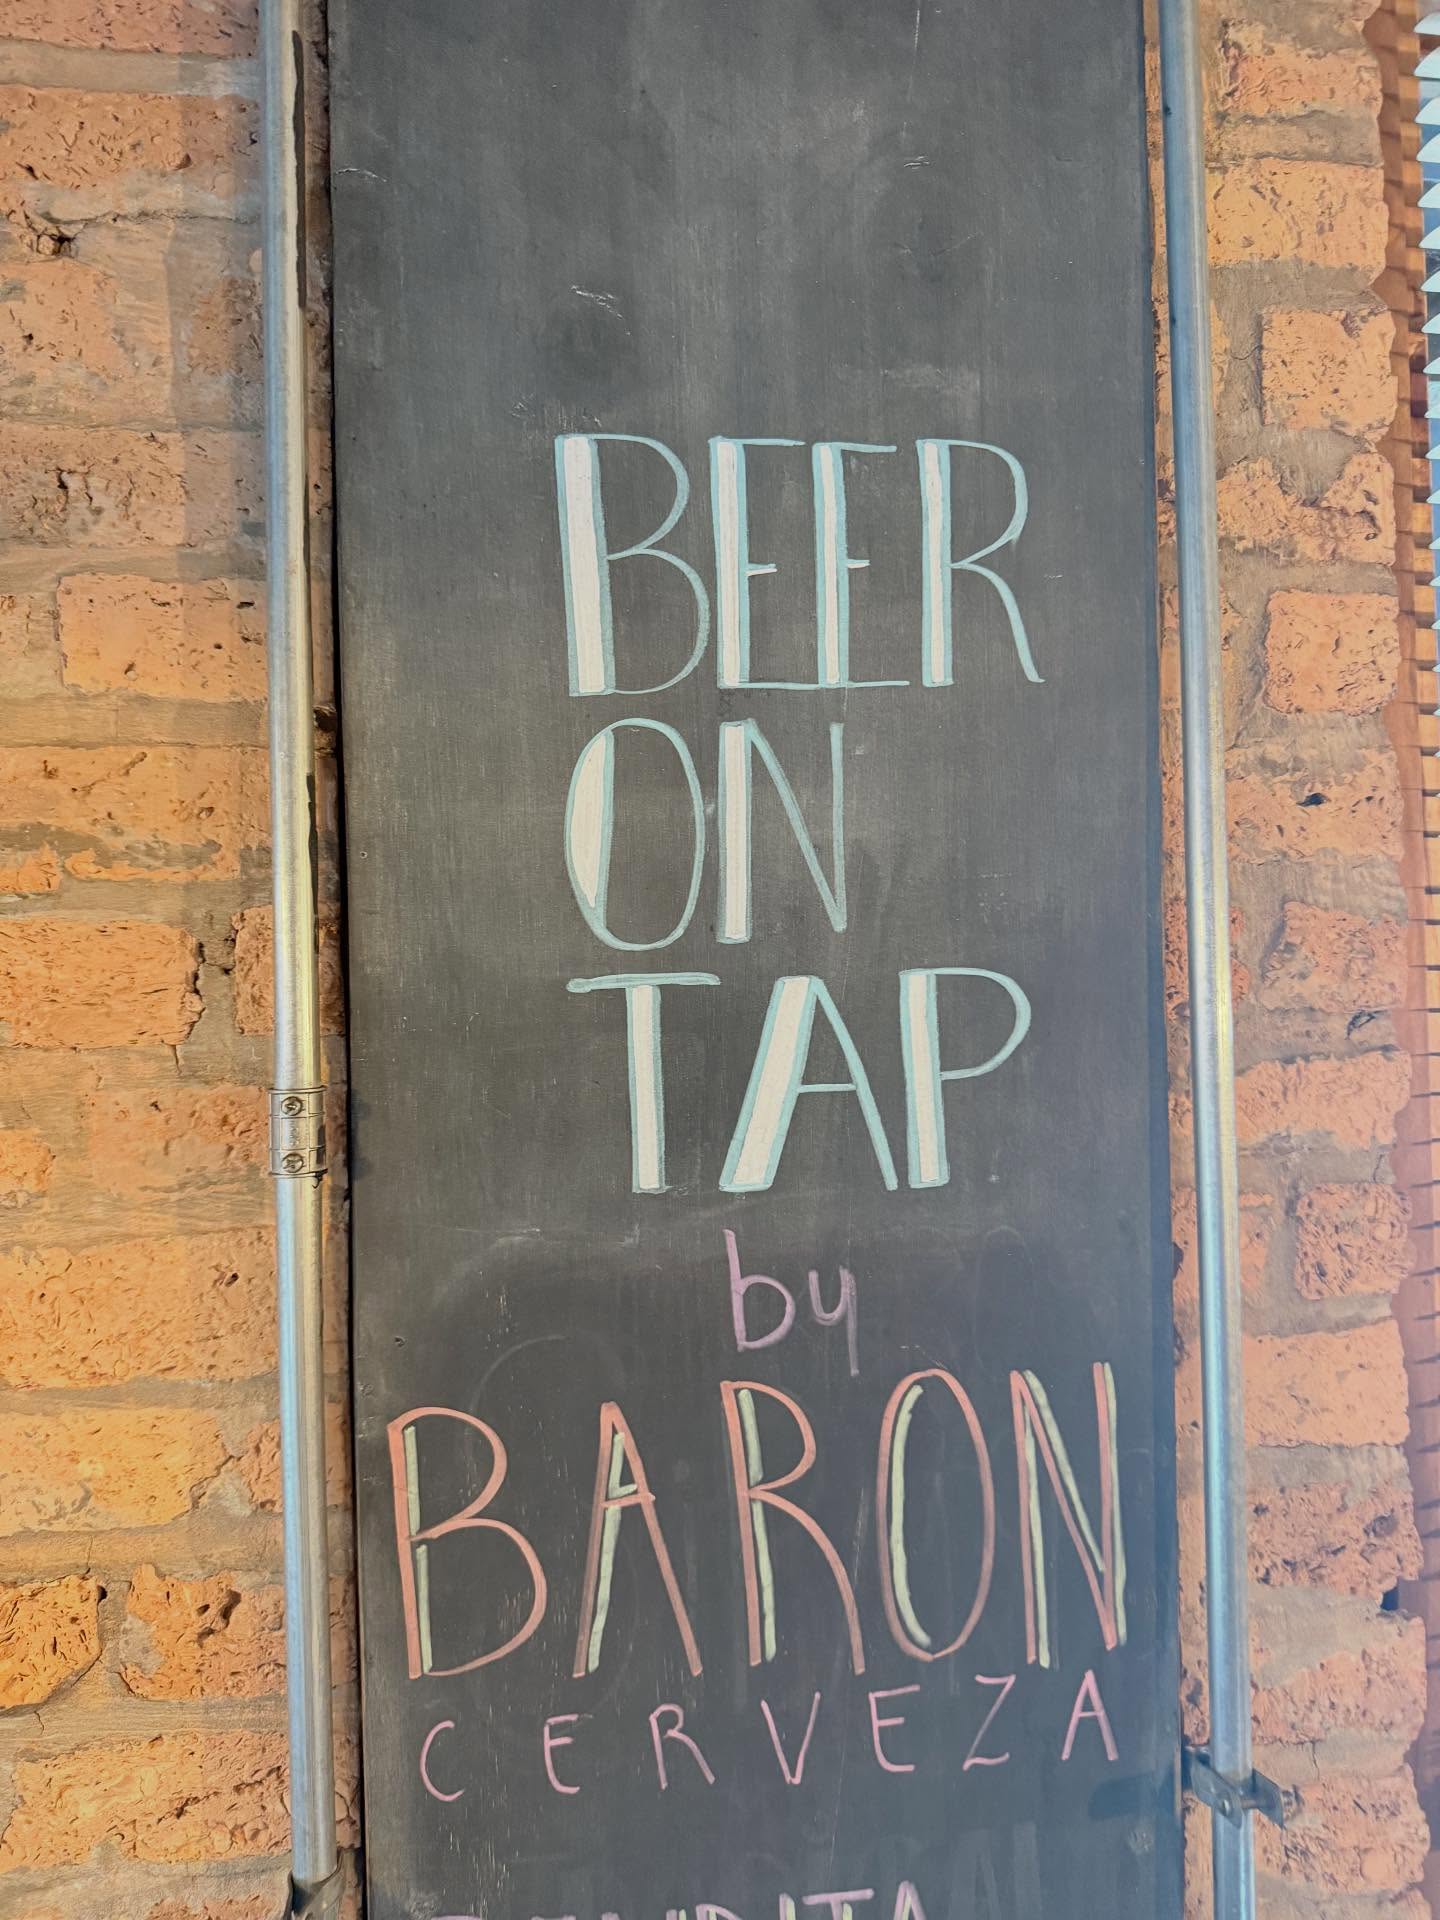 BEER
ON
TAP
by
BARON
CERVEZA